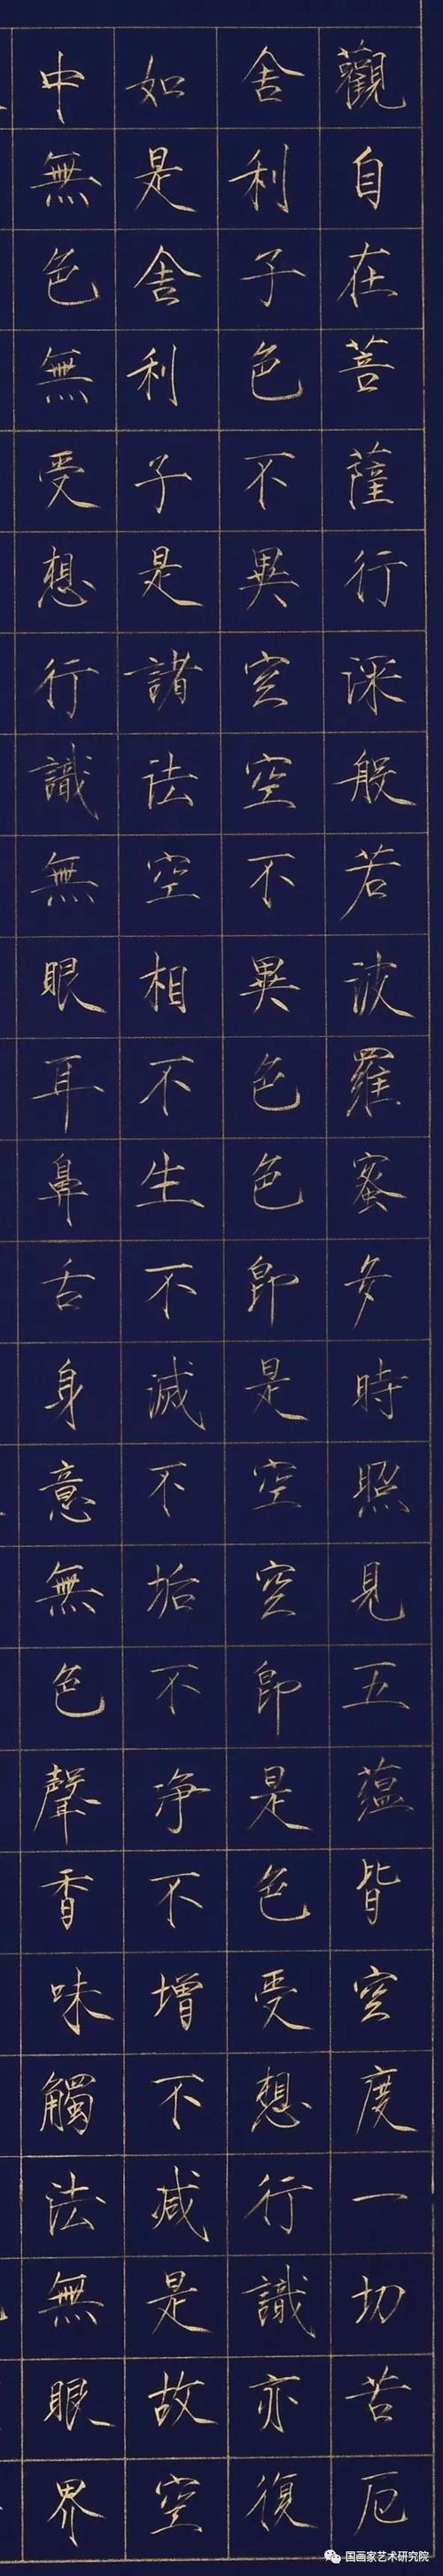 觀自在菩薩行深般若波羅蜜多時照見五蘊皆空度一切苦厄
舍利子色不異空空不異色色即是空空即是色受想行識亦復
如是舍利子是諸法空相不生不滅不垢不净不增不減是故空
中無色無受想行識無眼耳鼻舌身意無色聲香味觸法無眼界
国画家艺术研究院